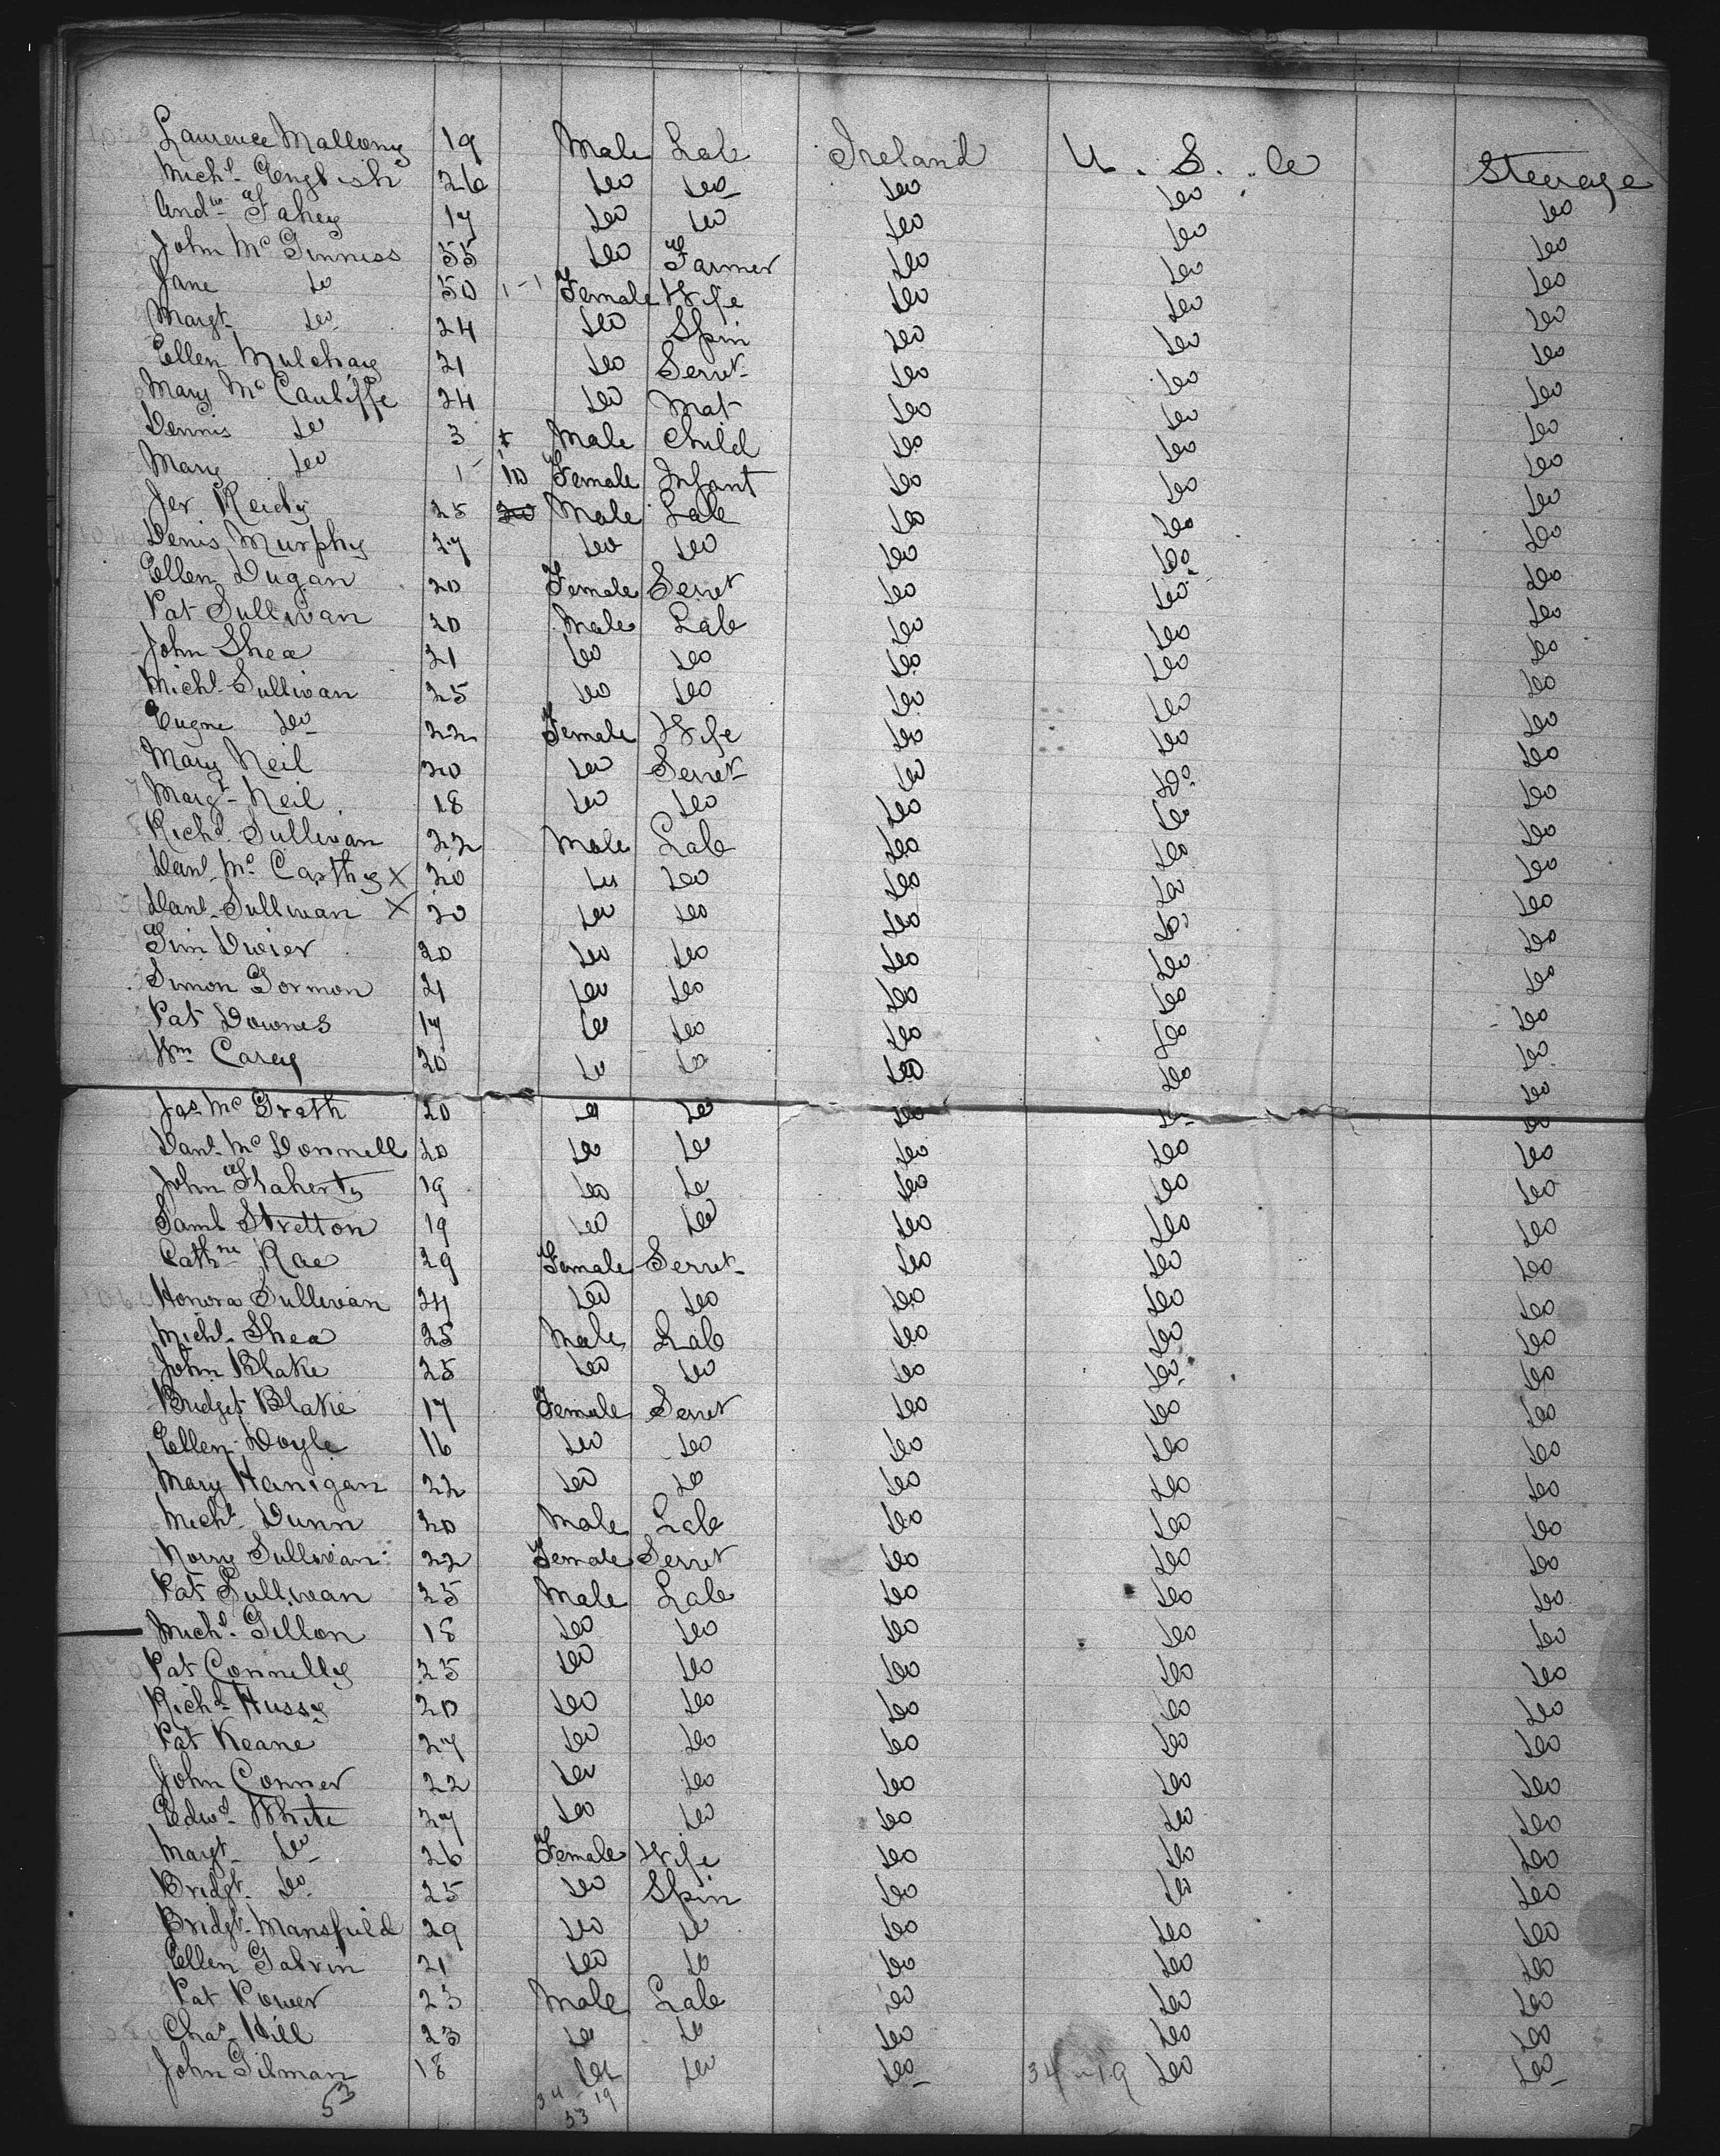 Laurence Mallony 19 Male Lab Ireland U. S. a Steerage
Michl English 26 do do do do do
Andw Fahey 17 do do do do do
John Mc Ginniss 55 do Farmer do do do
Jane do 50 1-1 Female Wife do do do
Margt do 24 do Spin do do do
Ellen Mulchay 21 do Servt do do do
Mary Mc Cauliffe 24 do Mat do do do
Dennis do 3 Male Child do do do
Mary do 1 Female Infant do do do
Jer Reidy 25 Male Lab do do do
Denis Murphy 27 do do do do do
Ellen Dugan 20 Female Servt do do do
Pat Sullivan 20 Male Lab do do do
John Shea 21 do do do do do
Michl Sullivan 25 do do do do do
Eugne do 22 Female Wife do do do
Mary Neil 20 do Servt do do do
Margt Neil 18 do do do do do
Richd Sullivan 22 Male Lab do do do
Danl Mc Carthy X 20 do do do do do
Danl Sullivan X 20 do do do do do
Tim Dwier 20 do do do do do
Simon Gormon 21 do do do do do
Pat Downes 17 do do do do do
Wm Carey 20 do do do do do
Jas Mc Grath 20 do do do do do
Danl Mc Donnell 20 do do do do do
John Flaherty 19 do do do do do
Saml Stretton 19 do do do do do
Cathne Rae 29 Female Servt do do do
Honora Sullivan 24 do do do do do
Michl Shea 25 Male Lab do do do
John Blake 25 do do do do do
Bridget Blake 17 Female Servt do do do
Ellen Doyle 16 do do do do do
Mary Hanigan 22 do do do do do
Michl Dunn 20 Male Lab do do do
Norry Sullivan 22 Female Servt do do do
Pat Sullivan 25 Male Lab do do do
Michl Gillon 18 do do do do do
Pat Connelly 25 do do do do do
Richd Hussy 20 do do do do do
Pat Keane 27 do do do do do
John Conner 22 do do do do do
Edwd White 27 do do do do do
Margt do 26 Female Wife do do do
Bridgt do 25 do Spin do do do
Bridgt Mansfield 29 do do do do do
Ellen Galvin 21 do do do do do
Pat Power 23 Male Lab do do do
Chas Hill 23 do do do do do
John Gilman 18 do do do 34 19 do do
53 34 19
53